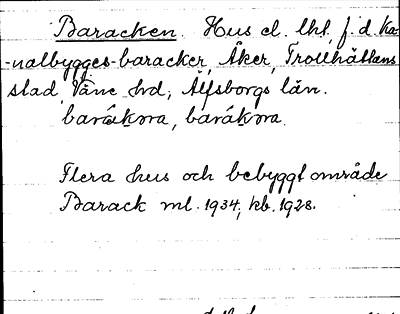 Baracken. Hus el. lht, f.d. Ka-
-nalbygges-baracker, Åker, Trollhättans
stad, Väne hd, Älfsborgs län.
barákₒra, barákₒra.
Flera hus och bebyggt område
Barack ml. 1934; kb. 1928.